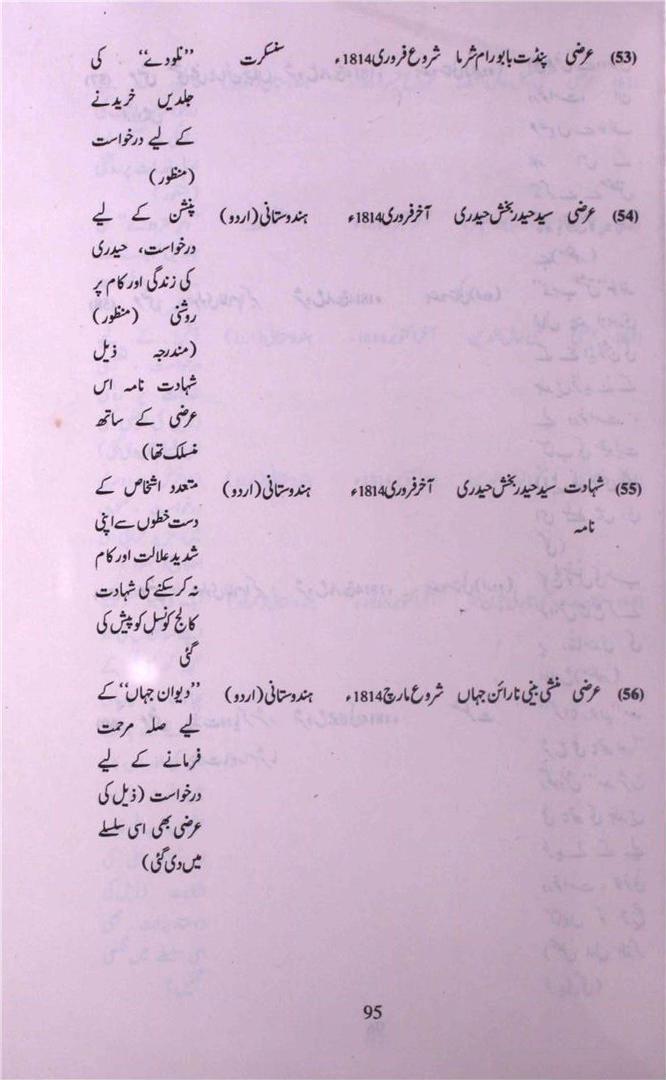 (53) عرضی پنڈت بابو رام شرما شروع فروری 1814ء سنسکرت ’’نلودے‘‘ کی
جلدیں خریدنے
کے لیے درخواست
(منظور)
(54) عرضی سید حیدر بخش حیدری آخر فروری 1814ء ہندوستانی (اردو) پنشن کے لیے
درخواست، حیدری
کی زندگی اور کام پر
روشنی (منظور)
(مندرجہ ذیل
شہادت نامہ اس
عرضی کے ساتھ
منسلک تھا)
(55) شہادت سید حیدر بخش حیدری آخر فروری 1814ء ہندوستانی (اردو) متعدد اشخاص کے
نامہ دست خطوں سے اپنی
شدید علالت اور کام
نہ کر سکنے کی شہادت
کالج کونسل کو پیش کی
گئی
(56) عرضی منشی بینی نارائن جہاں شروع مارچ 1814ء ہندوستانی (اردو) ’’دیوان جہاں‘‘ کے
لیے صلہ مرحمت
فرمانے کے لیے
درخواست (ذیل کی
عرضی بھی اسی سلسلے
میں دی گئی)
95